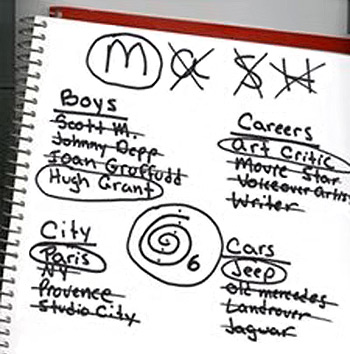 M A S H
Boys
Scott M.
Johnny Depp
Ioan Gruffudd
Hugh Grant
Careers
Art Critic
Movie Star
Voiceover Artist
Writer
City
Paris
NY
Provence
Studio City
6
Cars
Jeep
Old mercedes
Landrover
Jaguar